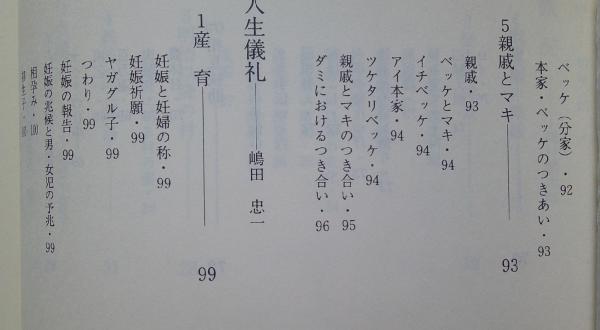 ベッケ（分家）・92
本家・ベッケのつきあい・93
5 親戚とマキ 93
親戚・93
ベッケとマキ・94
イチベッケ・94
アイ本家・94
ツケタリベッケ・94
親戚とマキのつき合い・95
ダミにおけるつき合い・96
人生儀礼 嶋田 忠一
1 産育 99
妊娠と妊婦の称・99
妊娠祈願・99
ヤガグル子・99
つわり・99
妊娠の報告・99
妊娠の兆候と男・女児の予兆・99
相孕み・100